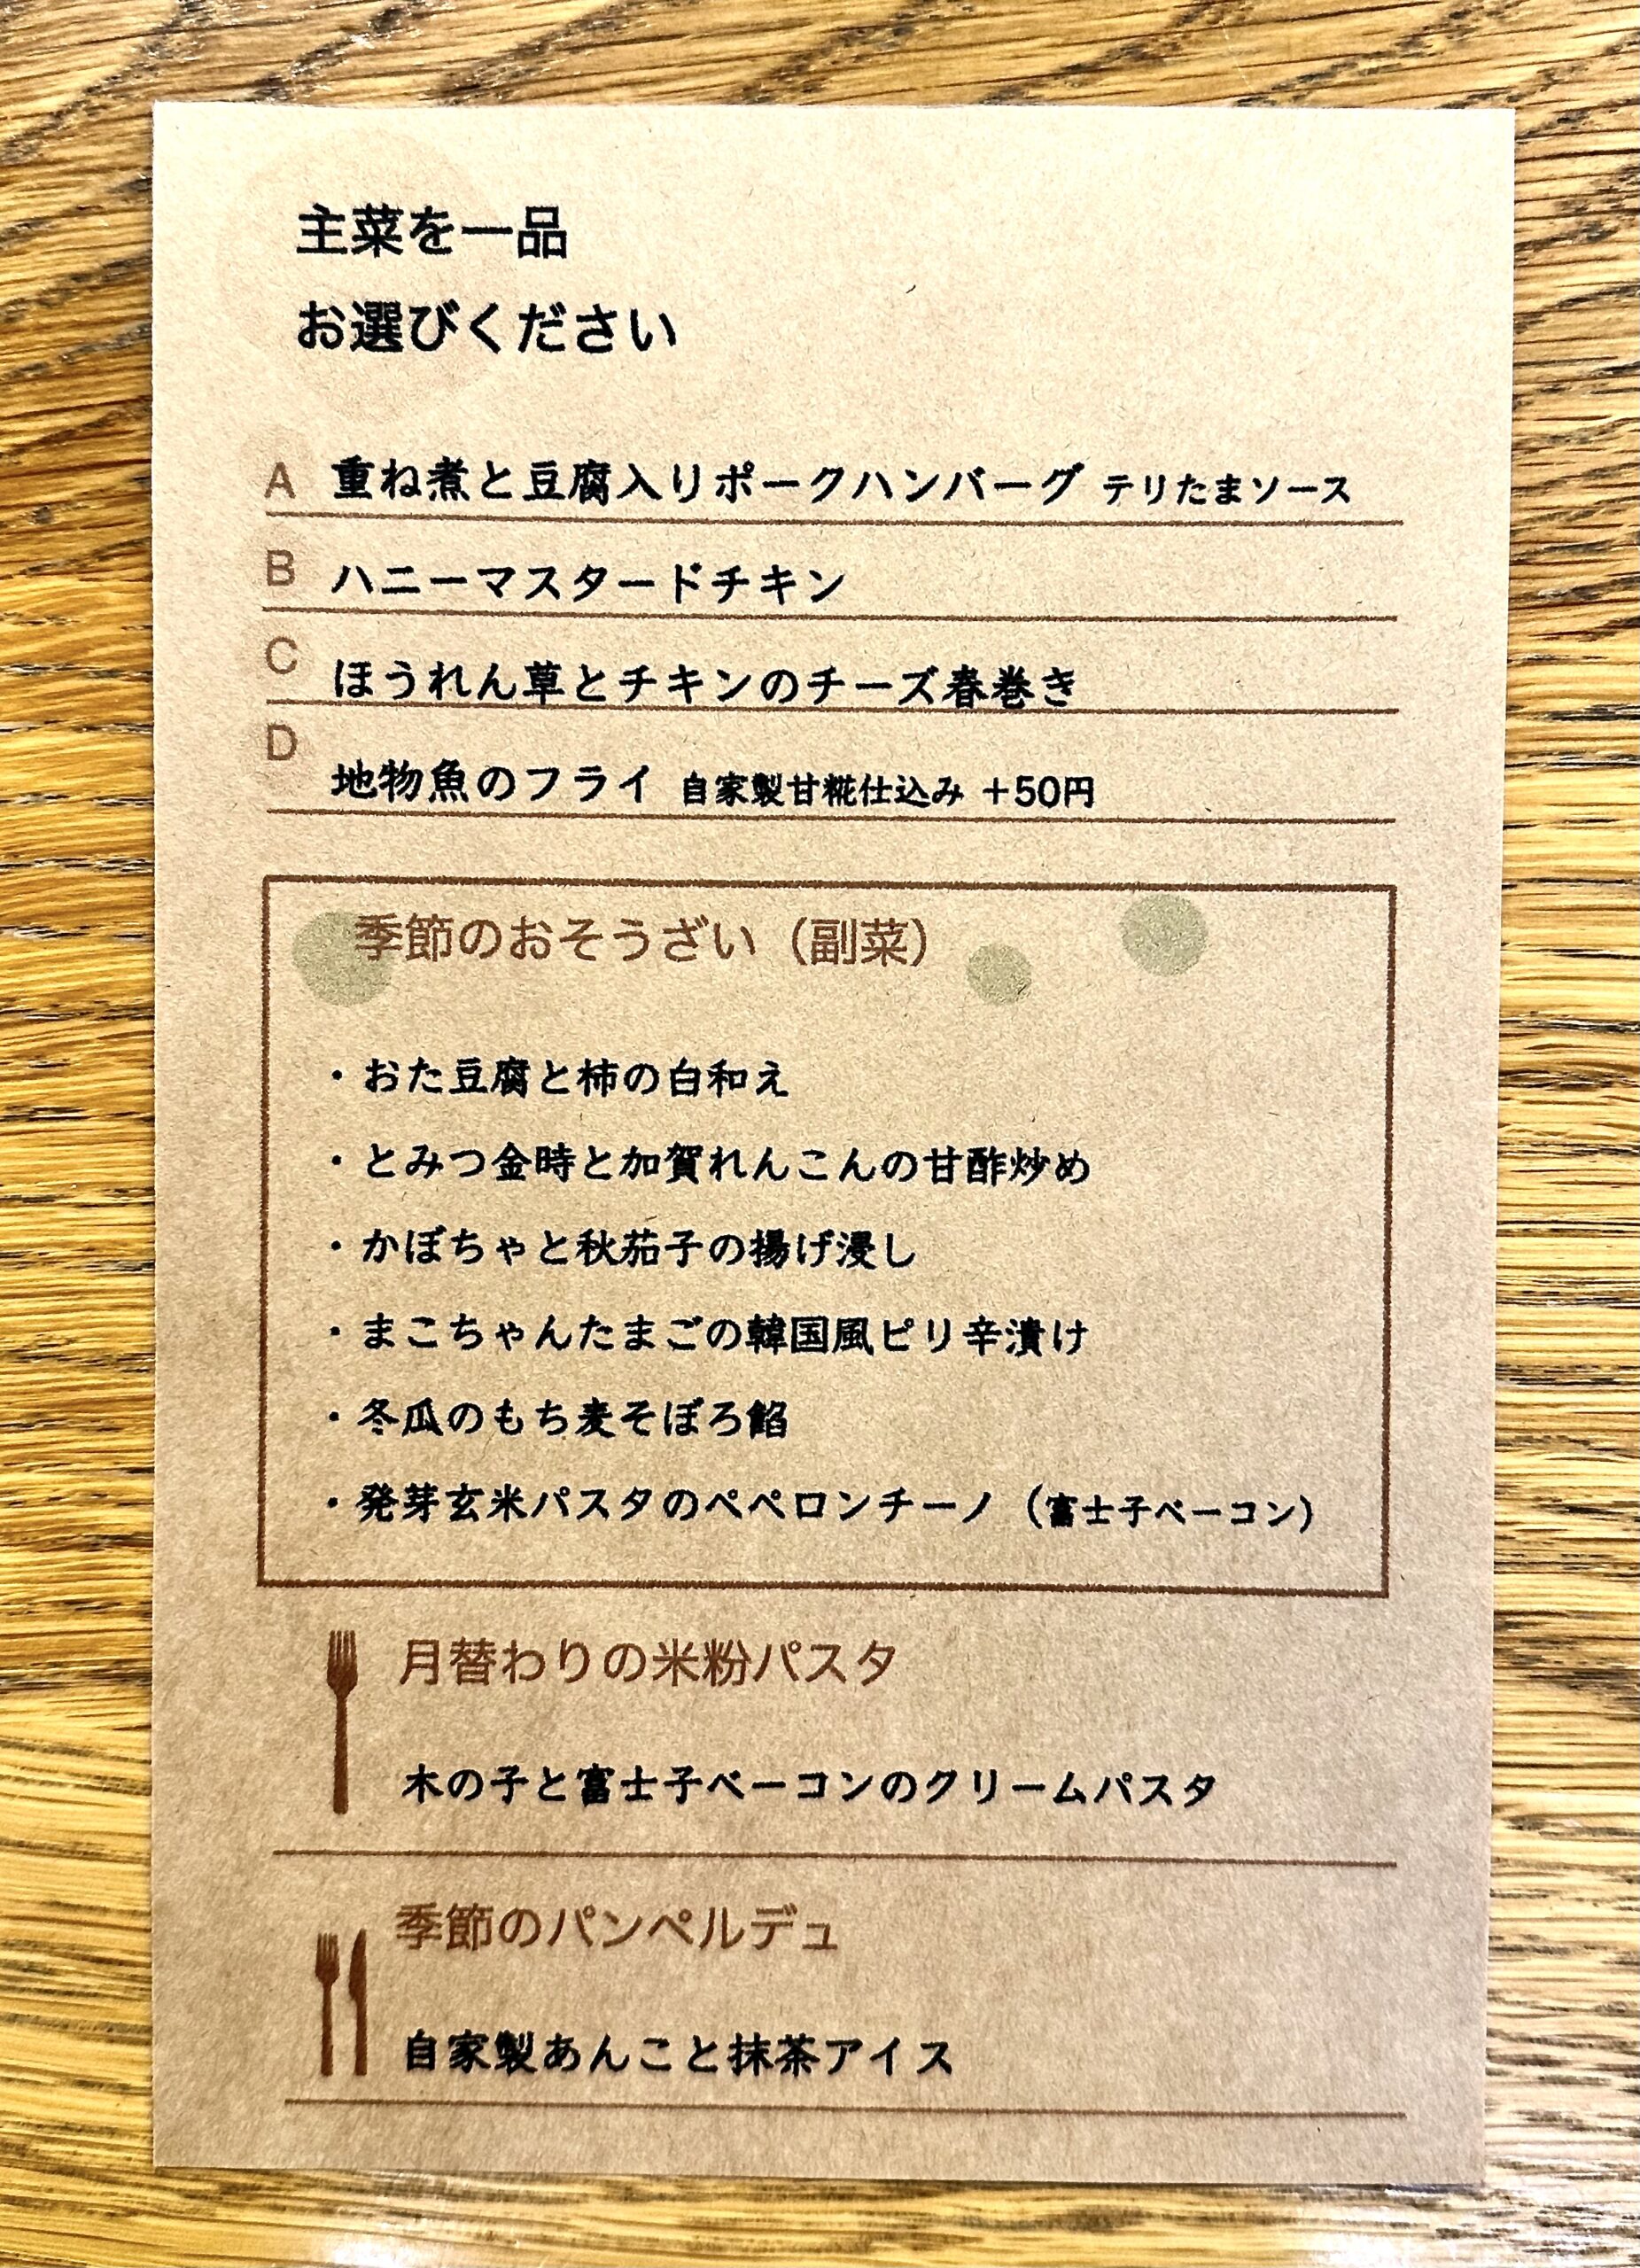 主菜を一品
お選びください
A 重ね煮と豆腐入りポークハンバーグ テリたまソース
B ハニーマスタードチキン
C ほうれん草とチキンのチーズ春巻き
D 地物魚のフライ 自家製甘糀仕込み +50円
季節のおそうざい（副菜）
・おた豆腐と柿の白和え
・とみつ金時と加賀れんこんの甘酢炒め
・かぼちゃと秋茄子の揚げ浸し
・まこちゃんたまごの韓国風ピリ辛漬け
・冬瓜のもち麦そぼろ餡
・発芽玄米パスタのペペロンチーノ（富士子ベーコン）
月替わりの米粉パスタ
木の子と富士子ベーコンのクリームパスタ
季節のパンペルデュ
自家製あんこと抹茶アイス